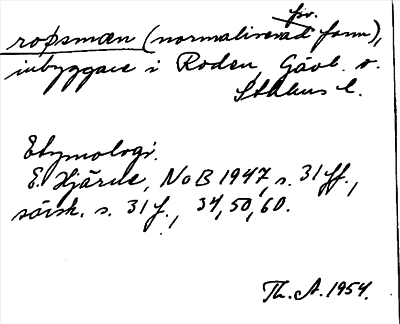 fsv.
ropsmæn (normaliserad form),
inbyggare i Roden, Gävl. o.
Sthlms l.
Etymologi.
E. Hjärne, NoB 1947, s. 31 ff.,
särsk. s. 31 f., 34, 50, 60.
Th. A. 1954.